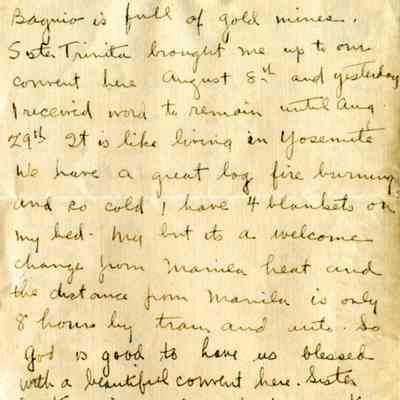 Baguio is full of gold mines.
Sister Trinita brought me up to our
convent here August 8th and yesterday
I received word to remain until Aug.
29th It is like living in Yosemite
We have a great log fire burning
and so cold I have 4 blankets on
my bed - My but its a welcome
change from Manila heat and
the distance from Manila is only
8 hours by train and auto. So
God is good to have us blessed
with a beautiful convent here. Sister